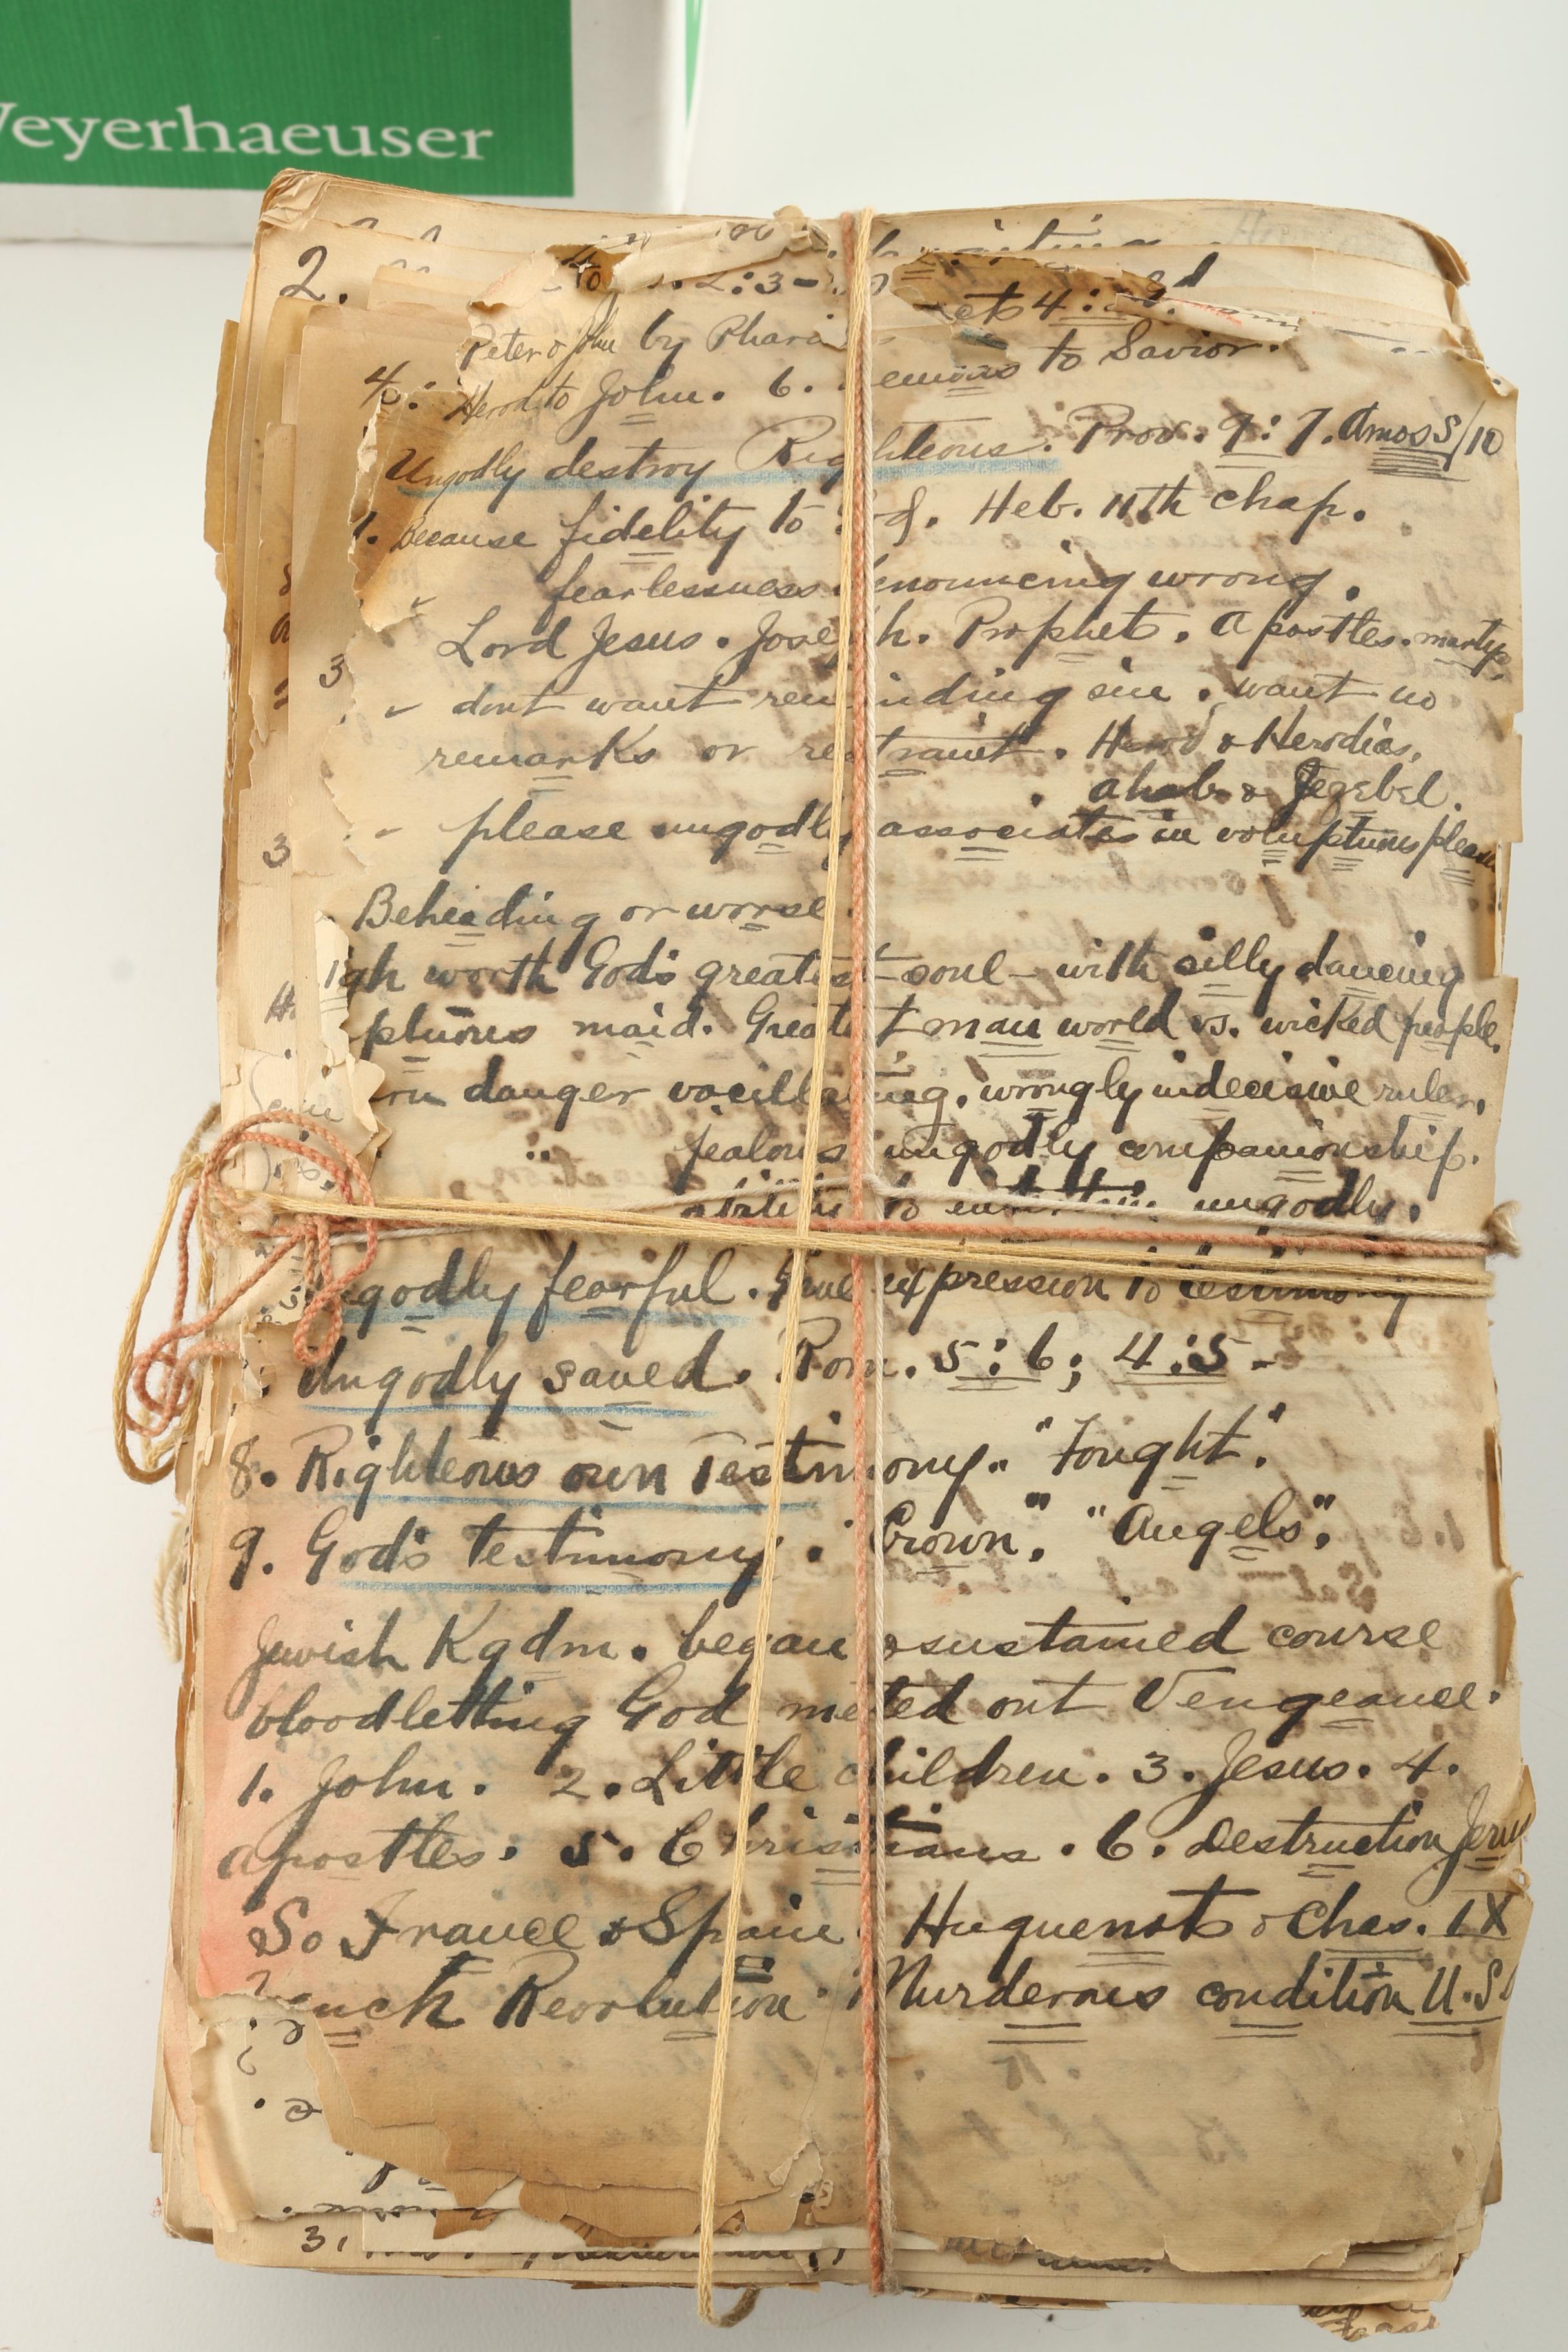 Weyerhaeuser
2.
2:3-
4:
Peter & John by Phari
to Savior.
4. Herod to John. 6.
Ungodly destroy Righteous. Prov. 9:7. Amos 5/10
1. Because fidelity to God. Heb. 11th chap.
fearlessness denouncing wrong.
Lord Jesus. Joseph. Prophets. Apostles. martyrs
3
dont want reminding sin. want no
remarks or restraint. Herod & Herodias.
Ahab & Jezebel.
3
please ungodly associates in voluptuous pleasu
Beheading or worse
igh worth God's greatest soul - with silly dancing
ptuous maid. Greatest man world vs. wicked people.
rn danger vacillating, wrongly indecisive ruler.
jealous ungodly companionship.
ability to ungodly.
ngodly fearful. Give expression to testimony
Ungodly saved. Rom. 5:6; 4:5-
8. Righteous own Testimony. "Fought".
9. God's testimony. "Crown". "Angels".
Jewish Kgdm. began sustained course
bloodletting God meted out Vengeance.
1. John. 2. Little children. 3. Jesus. 4.
apostles. 5. Christians. 6. Destruction Jeru
So France & Spain. Huguenots & Chas. IX
ench Revolution. Murderous condition U.S.
3.